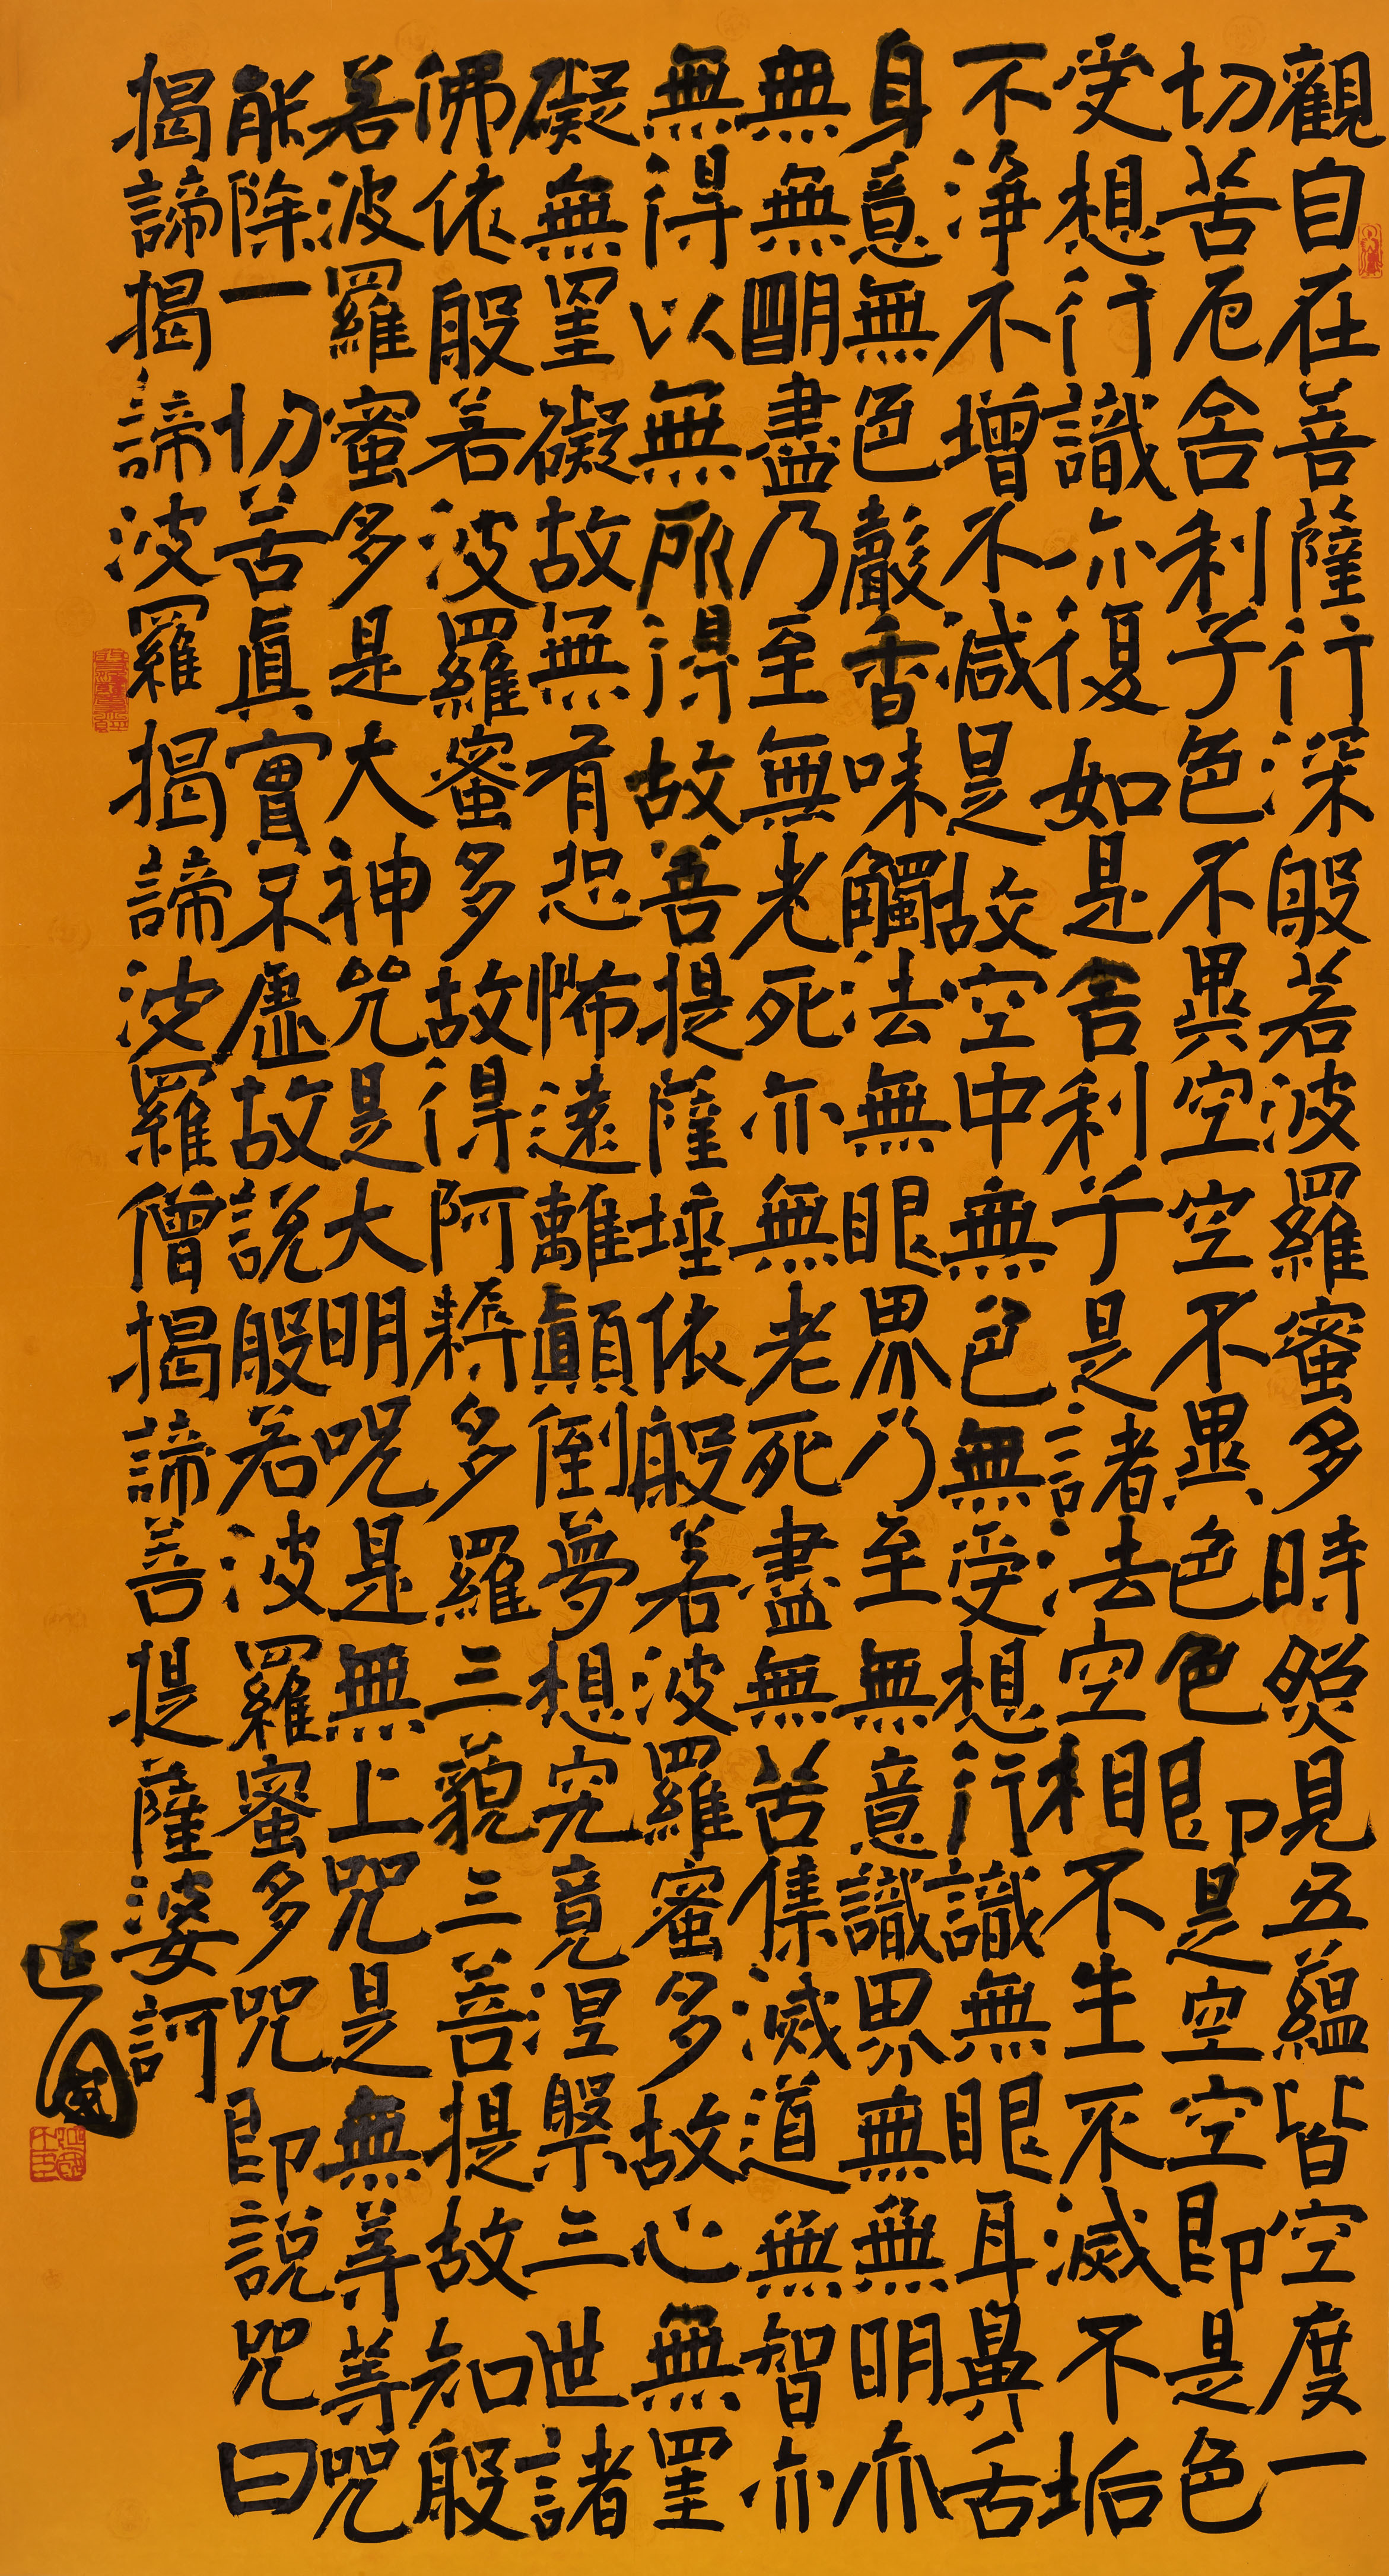 觀自在菩薩行深般若波羅蜜多時照見五蘊皆空度一
切苦厄舍利子色不異空空不異色色即是空空即是色
受想行識亦復如是舍利子是諸法空相不生不滅不垢
不淨不增不減是故空中無色無受想行識無眼耳鼻舌
身意無色聲香味觸法無眼界乃至無意識界無無明亦
無無明盡乃至無老死亦無老死盡無苦集滅道無智亦
無得以無所得故菩提薩埵依般若波羅蜜多故心無罣
礙無罣礙故無有恐怖遠離顛倒夢想究竟涅槃三世諸
佛依般若波羅蜜多故得阿耨多羅三藐三菩提故知般
若波羅蜜多是大神咒是大明咒是無上咒是無等等咒
能除一切苦眞實不虛故說般若波羅蜜多咒即說咒曰
揭諦揭諦波羅揭諦波羅僧揭諦菩提薩婆訶